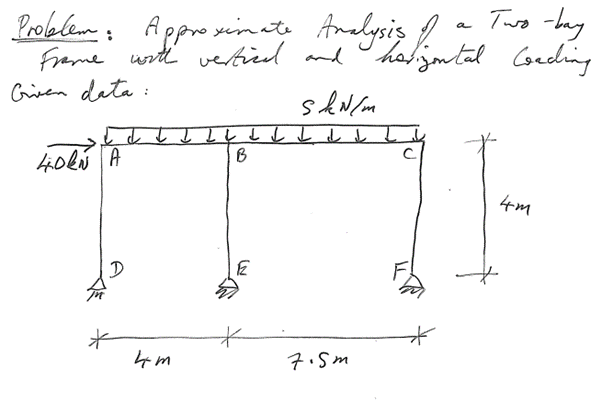 Problem: Approximate Analysis of a Two-bay
Frame with vertical and horizontal loading
Given data:
5 kN/m
40kN
A B C
4m
D E F
4m 7.5m